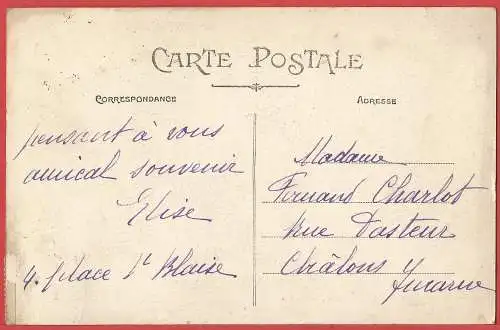 CARTE POSTALE
CORRESPONDANCE
ADRESSE
pensant à vous
amical souvenir
Elise
4. place St Blaise
Madame
Fernand Charlot
Rue Pasteur
Châlons s/marne